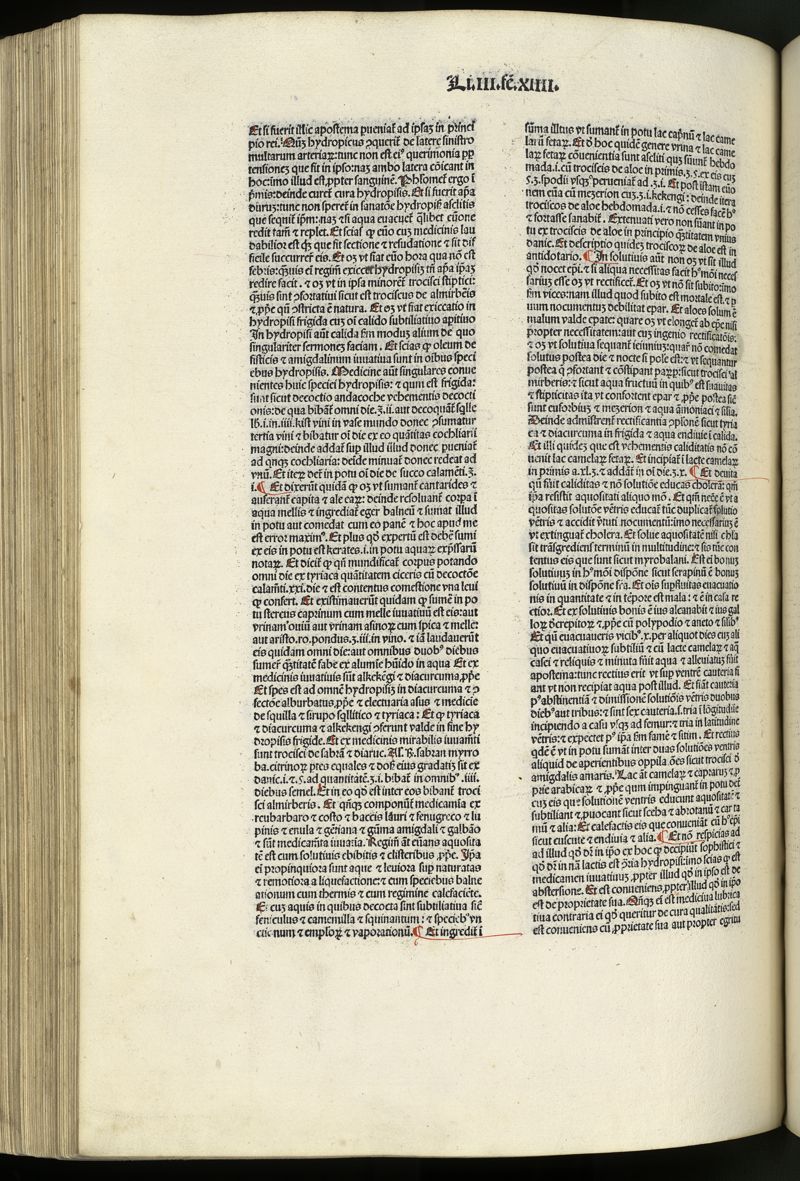 Li.III.fc̄.XIIII.
Et si fuerit illic apostema pueniat̄ ad ipsaʒ in princi
pio rei. Qn̄ʒ hydropicus ꝯquerit̄ de latere sinistro
multarum arteriaꝝ: tunc non est ei⁹ querimonia ꝓp
tensionez que fit in ipso: naʒ ambo latera cōicant in
hoc: imo illud est ꝓpter sanguinē. Phlomet̄ ergo ī
p̄mis: deinde curet̄ cura hydropisis. Et si fuerit ap̄a
dirus: tunc non speret̄ in sanatōe hydropis asclitis
que sequit̄ ip̄m: naʒ ⁊ si aqua euacuet̄ q̄libet euōne
redit tam̄ ⁊ replet. Et scias ꝙ euō cuʒ medicinis lau
dabilior est ꝙ̄ que fit sectione ⁊ resudatione ⁊ sit dif
ficile succurrere eis. Et oʒ vt fiat euō hora qua nō est
febris: q̄uis ei regimē exiccet hydropisiʒ tn̄ ap̄a ip̄aʒ
redire facit. ⁊ oʒ vt in ipsa minoret̄ trocisci stiptici:
q̄uis sunt ꝯfortatiui sicut est trociscus de almirbeis
⁊ ꝓp̄e qn̄ ꝯstricta ē natura. Et oʒ vt fiat exiccatio in
hydropisi frigida cuʒ oī calido subtiliatiuo apitiuo
In hydropisi aūt calida fm̄ modum alium de quo
singulariter sermonez faciam. Et scias ꝙ oleum de
fisticis ⁊ amigdalinum iuuatiua sunt in oībus speci
ebus hydropisis. Medicine aūt singulares conue
nientes huic speciei hydropisis: ⁊ qum est frigida:
sunt sicut decoctio andacoche vehementis decocti
onis: de qua bibāt̄ omni die.ʒ.ii. aut decoquāt̄ sq̄lle
lb̄.i.in.iiii.kist vini in vase mundo donec ꝯsumatur
tertia vini ⁊ bibatur oī die ex eo quātitas cochlearii
magni: deinde addat̄ sup illud illud donec pueniat̄
ad qnqʒ cochliaria: deīde minuat̄ donec redeat ad
vnū. Et iteꝝ det̄ in potu oī die de succo calamēti.ʒ.
i. ¶ Et dixerūt quidā ꝙ oʒ vt sumant̄ cantarides ⁊
auferant̄ capita ⁊ ale eaꝝ: deinde resoluant̄ corpa ī
aqua mellis ⁊ ingrediat̄ eger balneū ⁊ sumat illud
in potu aut comedat cum eo panē ⁊ hoc apud me
est error maxim⁹. Et plus qd̄ expertū est debet̄ sumi
ex eis in potu est kerates.i.in potu aquaꝝ exp̄ssarū
notaꝝ. Et dicit̄ ꝙ qn̄ mundificat̄ corpus potando
omni die ex tyriaca quātitatem ciceris cū decoctōe
calamīti.xxi.die ⁊ est contentus comestione vna leui
ꝙ confert. Et existimauerūt quidam ꝙ sumē in po
tu stercus caprinum cum melle iuuatiuū est eis: aut
vrinam ouiū aut vrinam asinoꝝ cum spica ⁊ melle:
aut aristo.ro.pondus.ʒ.iii.in vino. ⁊ iā laudauerūt
eis quidam omni die: aut omnibus duob⁹ diebus
sumet̄ q̄titatē fabe ex alumīe hūido in aqua Et ex
medicinis iuuatiuis sūt alkekēgi ⁊ diacurcuma ꝓp̄e
Et spes est ad omnē hydropisiʒ in diacurcuma ⁊ ꝯ
fectōe alburbatus, ꝓp̄e ⁊ electuaria asus ⁊ medicie
de squilla ⁊ sirupo sq̄llitico ⁊ tyriaca: Et ꝙ tyriaca
⁊ diacurcuma ⁊ alkekengi ꝯferunt valde in fine hy
dropisis frigide. Et ex medicinis mirabilis iuuamīti
sunt trocisci de fabrā ⁊ diaruc.
ba. citrinoꝝ ptes equales ⁊ dosis eius gradatiʒ sit ex
danic.i.⁊ ad quantitatē.ʒ.i.bibat̄ in omnib⁹.iiii.
diebus semel. Et in eo qd̄ est inter eos bibant̄ troci
sci almirberis. Et qn̄qʒ componūt̄ medicamīa ex
reubarbaro ⁊ costo ⁊ baccis lauri ⁊ fenugreco ⁊ lu
pinis ⁊ enula ⁊ gētiana ⁊ gūma amigdali ⁊ galbāo
⁊ sūt medicamīta iuuatiua. Regimē āt euāns aquosita
tē est cum solutiuis ebibitis ⁊ clisteribus ꝓp̄e. Ip̄a
ei propinquiora sunt aque ⁊ leuiora sup naturas
⁊ remotiora a liquefactione: ⁊ cum speciebus balne
ationum cum thermis ⁊ cum regimine calefaciēte.
⁊ cuʒ aquis in quibus decocta sint subtiliatiua sicut
feniculus ⁊ camomilla ⁊ squinantum: ⁊ specieb⁹ vn
ctionum ⁊ emplɔꝝ ⁊ vaporationū. ¶ Et ingredit̄ ī
sūma illius vt sumant̄ in potu lac caprinū ⁊ lac came
larū fetaꝝ. Et ō hoc quidē genere vrina ⁊ lac came
laꝝ fetaꝝ cōuenientia sunt ascliti quʒ sumūt̄ hebdo
mada.i.cū trociscis de aloe in primis.ʒ. ex eis cuʒ
ʒ.spodii vsqʒ perueniat ad.ʒ.i. Et post istam euō
nem euā cū mezerion cuʒ.ʒ.i.kekengi: deinde itera
trociscos de aloe hebdomada.i.⁊ nō cesses facē h⁹
⁊ fortasse sanabit̄. Extenuati vero non sumāt in po
tu ex trociscis de aloe in principio q̄titatem vnius
danic. Et descriptio quidez trociscoꝝ de aloe est in
antidotario. ¶ In solutiuis aūt non oʒ vt sit illud
qd̄ nocet epi. ⁊ si aliqua necessitas facit h⁹mōi neces
sarius esse oʒ vt rectificet̄. Et oʒ vt nō sit subito: imo
fm̄ vices: nam illud quod subito est mortale est. ⁊ p
num nocumentuʒ debilitat epar. Et aloes solum ē
malum valde epate: quare oʒ vt elonget̄ ab epe nisi
propter necessitatem: aut cuʒ ingenio rectificatōis.
⁊ oʒ vt solutiua sequant̄ ieiuniuʒ: quaꝝ nō comedat
solutus postea die ⁊ nocte si pole est: ⁊ vt sequantur
postea q̄ ꝯfortant ⁊ cōstipant paꝝꝑ: sicut trocisci al
mirberis: ⁊ sicut aqua fructuū in quib⁹ est suauitas
⁊ stipticitas ita vt confortent epar ⁊ ꝓp̄e postea sic̄
sunt euforbiuʒ ⁊ mezerion ⁊ aqua āmoniaci ⁊ silia.
Deinde admistrent̄ rectificantia ꝯplonē sicut tyria
ca ⁊ diacurcuma in frigida ⁊ aqua endiuie ī calida.
Et illi quideʒ que est vehementis caliditatis nō cō
uenit lac camelaꝝ fetaꝝ. Et incipiat̄ ī lacte camelaꝝ
in primis a.xl.ʒ.⁊ addāt̄ in oī die.ʒ.x. ¶ Et deuita
qn̄ fuit caliditas ⁊ nō solutiōe educas cholerā: qm̄
ipa resistit aquositati aliquo mō. Et qm̄ necē ē vt a
quositas solutōe vētris educat̄ tūc duplicat̄ solutio
vētris ⁊ accidit v̄tuti nocumentū: imo necessarius ē
vt extinguat̄ cholera. Et solue aquositatē nili
sit trāsgrediens terminū in multitudine: ⁊ sis tūc con
tentus eis que sunt sicut myrobalani. Est ei bonuʒ
solutiuus in h⁹mōi dispōne sicut serapinū ē bonuʒ
solutiuū in dispōne fra. Et oīs supfluitas euacuatio
nis in quantitate ⁊ in tēpore est mala: ⁊ ē in casa re
ctior. Et ex solutiuis bonis ē ius aleanabin ⁊ ius gal
loꝝ decrepitoꝝ ⁊ ꝓp̄e cū polypodio ⁊ aneto ⁊ silib⁹
Et qn̄ euacuaueris vicib⁹.x.per aliquot dies cuʒ ali
quo euacuatiuoꝝ subtiliū ⁊ cū lacte camelaꝝ ⁊ aq̄
casei ⁊ reliquis ⁊ minuta fuit aqua ⁊ alleuiatus fuit
apostema: tunc rectius erit vt sup ventrē cauteria fi
ant vt non recipiat aqua post illud. Et fiāt cauteria
p⁹ abstinentiā ⁊ dimissionē solutiōis vētris duobus
dieb⁹ aut tribus: ⁊ sint sex cauteria. tria ī lōgitudīe
incipiendo a casu vsqʒ ad femur: ⁊ tria in latitudine
vētris: ⁊ expectet p⁹ ipa fm̄ famē ⁊ sitim. Et rectius
qdē ē vt in potu sumāt inter duas solutiōes ventris
aliquid de aperientibus oppila ōes sicut trocisci ō
amigdalis amaris. Lac āt camelaꝝ ⁊ caprarus ⁊ p
prie arabicaꝝ ⁊ ꝓp̄e qum impinguant̄ in potu det̄
cuʒ eis qn̄ solutione ventris educunt aquositatē ⁊
subtiliant ⁊ ꝓuocant sicut sceba ⁊ abrotanū ⁊ carta
mū ⁊ alia: Et calefactis eis que conueniāt cū h⁹ epi
sicut cuscute ⁊ endiuia ⁊ alia. ¶ Et nō respicias ad
ad illud qd̄ dr̄ in ip̄o ex hoc ꝙ decipiūt sophistici ⁊
qd̄ dr̄ in nā lactis est ꝯtria hydropisi: imo scias ꝙ est
medicamen iuuatiuuʒ ꝓpter illud qd̄ in ipso est de
abstersione. Et est conueniens ꝓpter illud qd̄ in ip̄o
est de proprietate sua. Qn̄qʒ ei est medicina lubrica
tiua contraria ei qd̄ queritur de cura qualitatis: sed
est conueniens cū ꝓprietate sua aut propter egritu